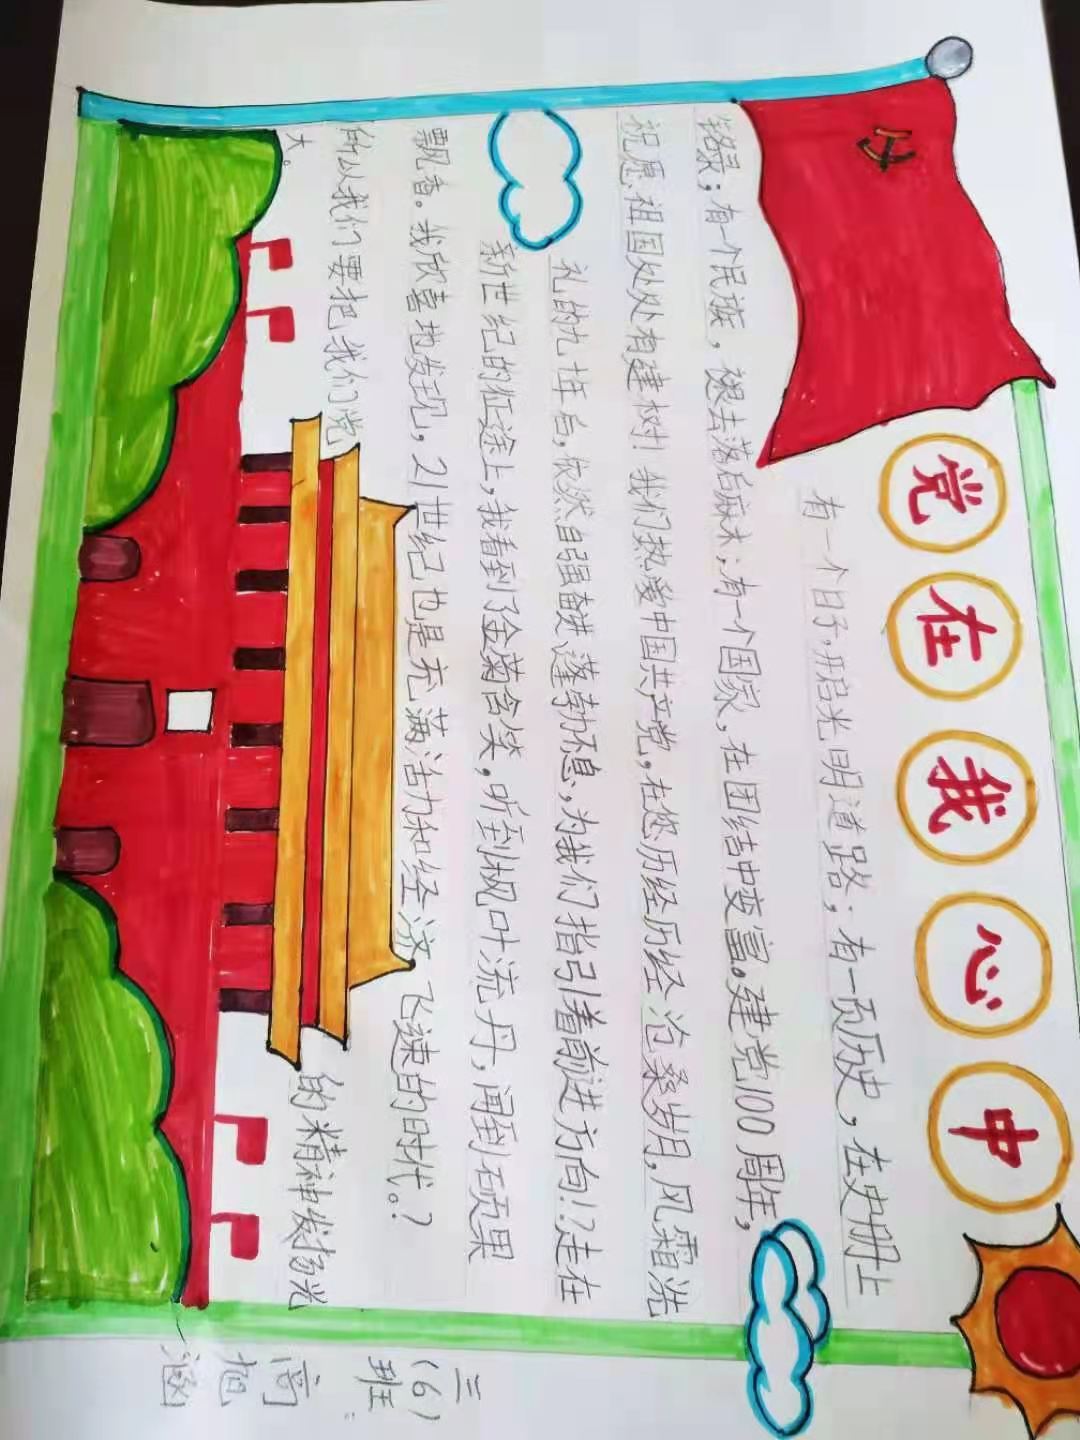 党在我心中
有一个日子,开启光明道路;有一页历史,在史册上
铭录;有一个民族,褪去落后麻木;有一个国家,在团结中变富。建党100周年,
祝愿祖国处处有建树!我们热爱中国共产党,在您历经历经沧桑岁月,风霜洗
礼的九十年后,依然自强奋进,蓬勃不息,为我们指引着前进方向!?走在
新世纪的征途上,我看到了金菊含笑,听到枫叶流丹,闻到硕果
飘香。我欣喜地发现,21世纪也是充满活力和经济飞速的时代。?
所以我们要把我们党的精神发扬光
大。
三(6)
班:
商
旭
涵